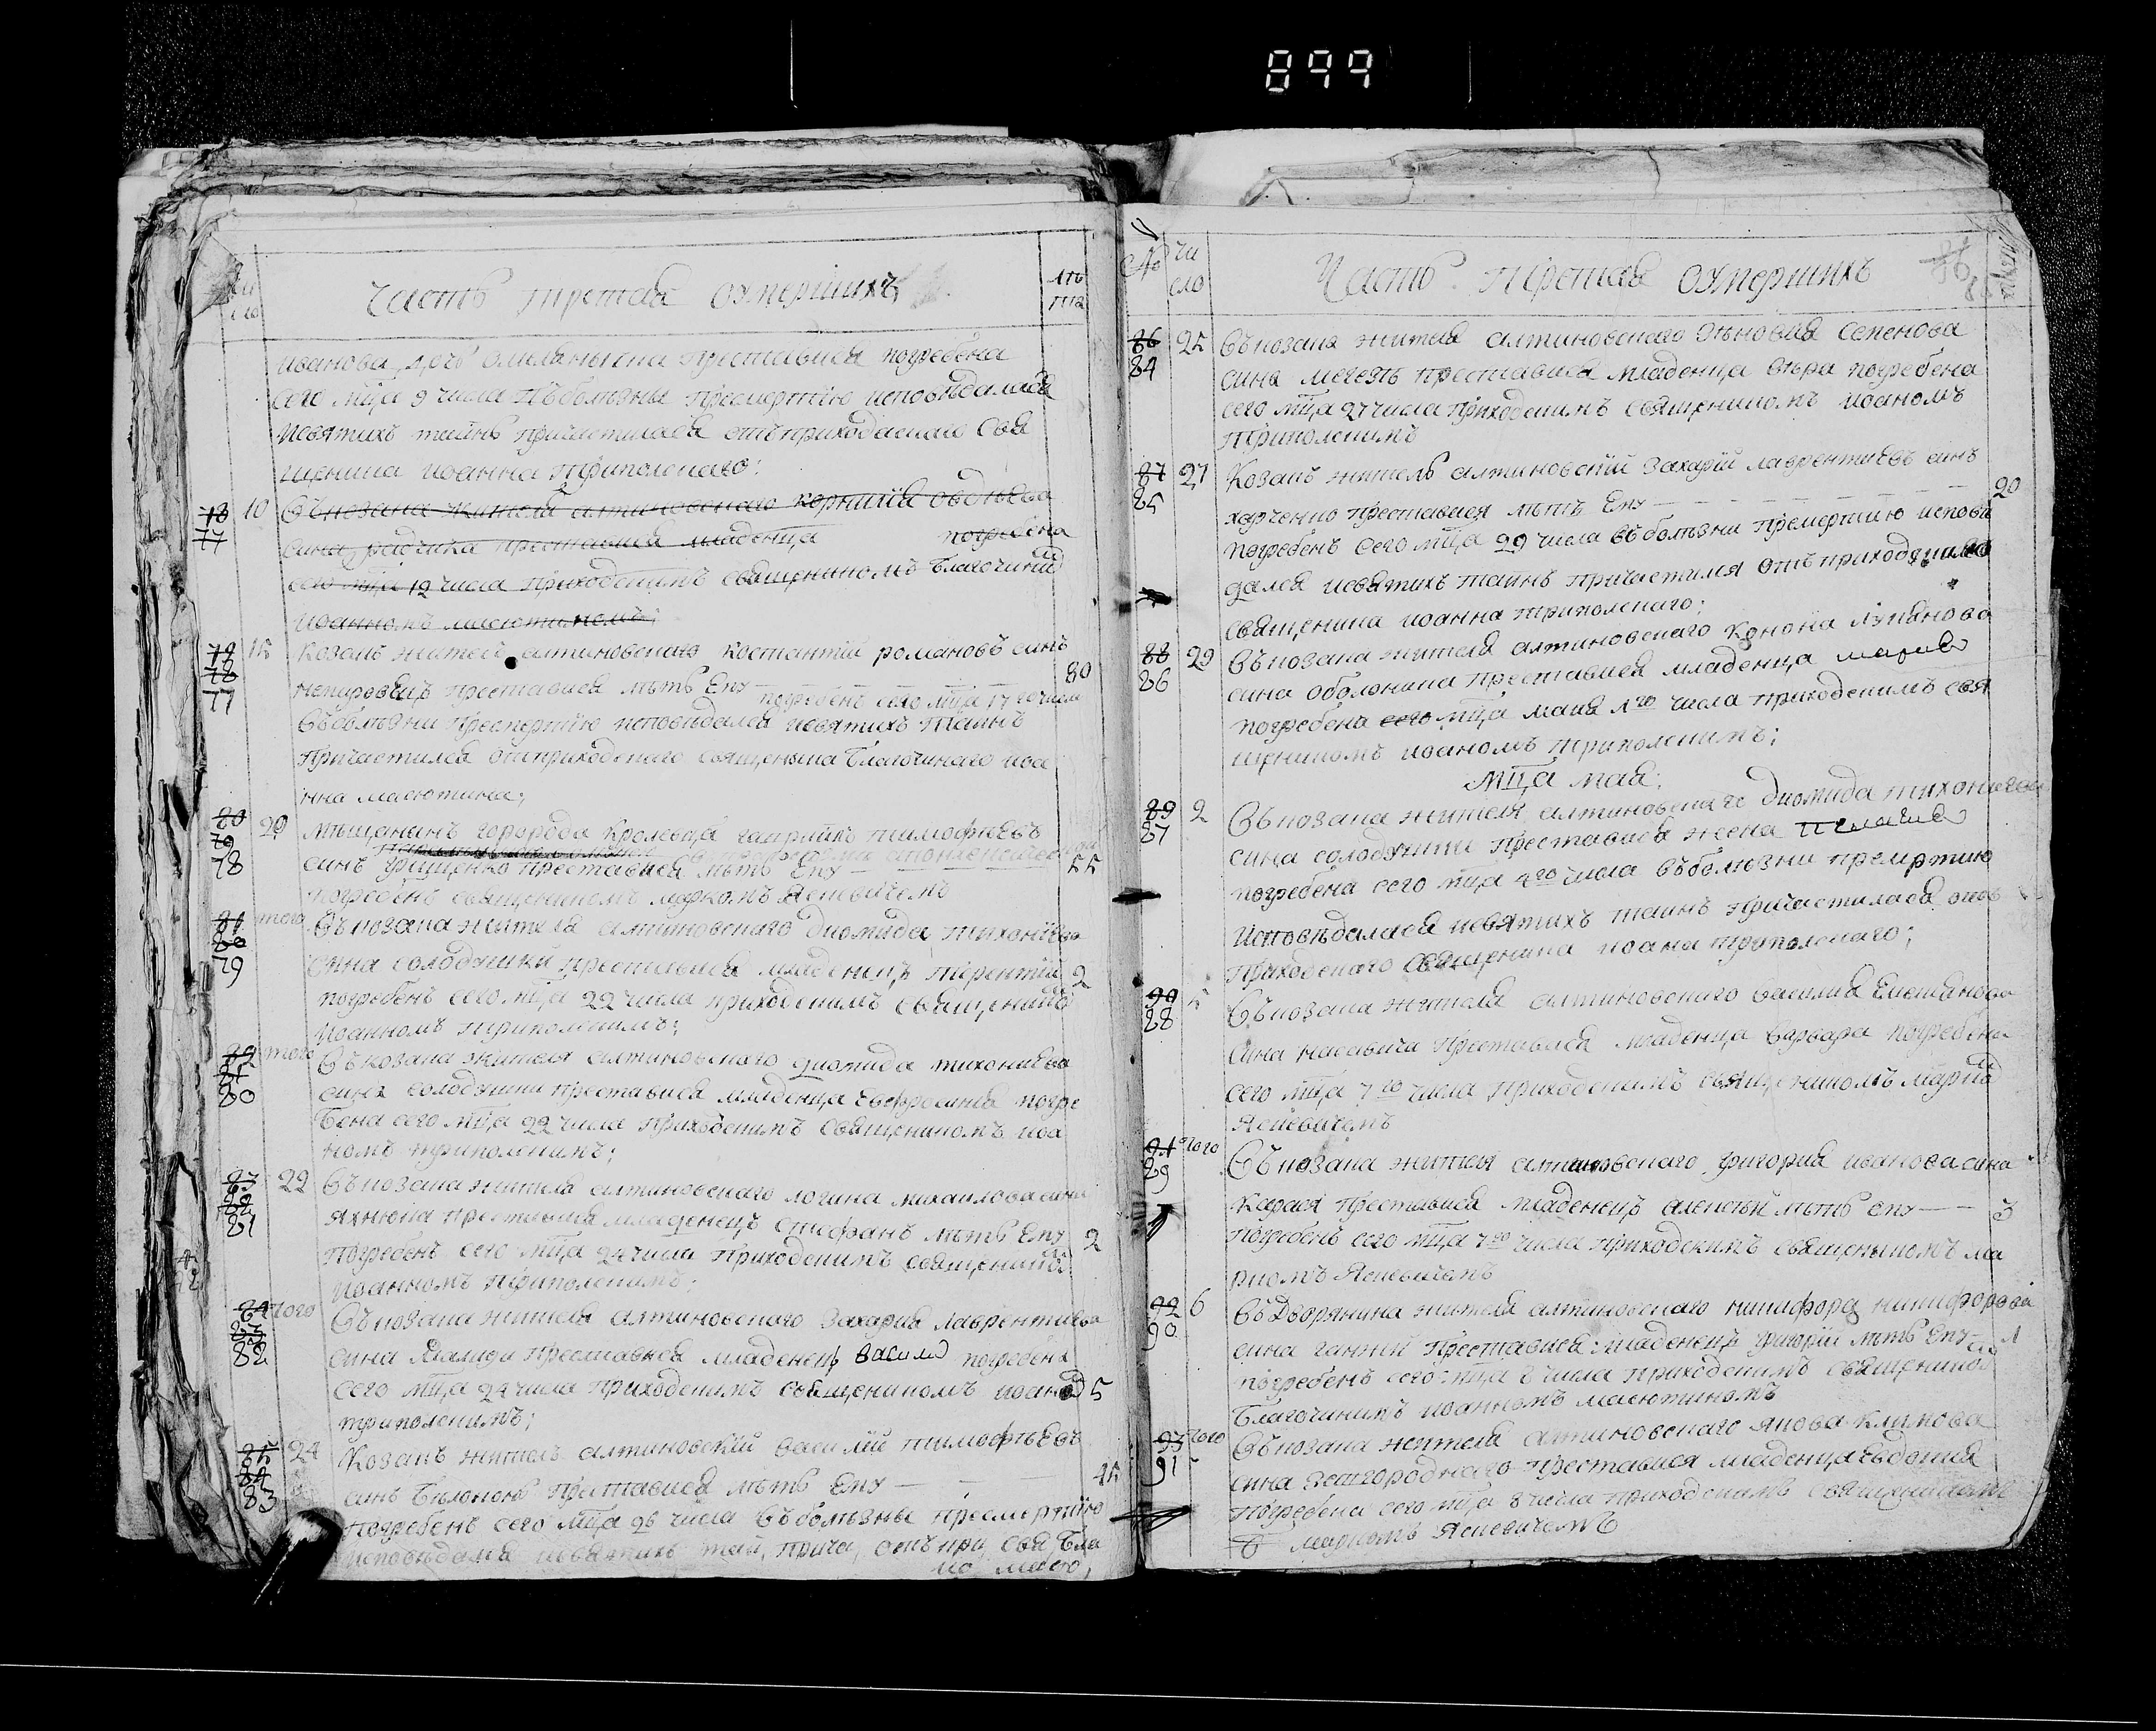 899
Часть третая озмершихъ
лѣ
та
иванова дочъ преставися погребена
сего мца 9 числа въ болѣзны пресмертію исповѣдалася
исвятихъ тайнъ причастилася отъ приходскаго свя
щеника иоанна Триполскаго:
78 77 10 Въ козака жителя алтиновского корнилія овдѣева
сина радчика преставися младенца погребена
сего мца 12 числа приходскимъ священикомъ благочини
иоанномъ масютинемъ;
79 78 77 15 Козакъ жител алтиновского костантій романовъ синъ
преставися лѣтъ ему 80
погребенъ сего мца 17 го числа
въ болѣзни пресмертію исповѣдался исвятихъ таинъ
причастился отприходского священика благочинаго иоа
нна масютина;
80 79 78 20 мѣщанинъ города Кролевця гавриилъ тимофѣевъ
синъ грищенко преставися лѣтъ ему 55
погребенъ священикомъ маркомъ Ясневичемъ
81 80 79 того Въ козака жителя алтиновского диомида тихонієва
сина солодушки преставися младенецъ терентій 2
погребенъ сего мца 22 числа приходскимъ священико
иоанномъ триполскимъ;
82 81 80 того Въ козака жителя алтиновского диомида тихонієва
сина солодушки преставися младенца евфросиния погре
бена сего мца 22 числа приходскимъ священикомъ иоа
номъ триполскимъ;
83 82 81 22 Въ козака жителя алтиновского логина михаилова сина
яхнюка преставися младенецъ стефанъ лѣтъ ему 2
погребенъ сего мца 24 числа приходскимъ священико
иоанномъ триполскимъ;
84 83 82 того Въ козака жителя алтиновского захария лаврентиева
сина преставися младенец василіо погребена
сего мца 24 числа приходскимъ священикомъ иоано 5
триполскимъ;
85 84 83 24 Козакъ жител алтиновскій василій тимофѣєвъ
синъ бѣлоконь преставися лѣтъ ему 45
погребенъ сего мца 26 числа въ болѣзны пресмертїю
исповѣдался исвятихъ тай, прича, отъ при, свя, бла
ио масю,
№ чи
сло Часть третая озмершихъ 86 лѣта
86 84 25 Въ козака жителя алтиновского зѣновия семенова
сина преставися младенца вѣра погребена
сего мца 27 числа приходскимъ священикомъ иоаномъ
Триполскимъ
87 85 27 Козакъ жителъ алтиновскій захарій лаврентиевъ синъ
харченко преставися лѣтъ ему 20
погребенъ сего мца 29 числа въ болѣзни премертию исповѣ
дался исвятихъ таинъ причастился отъ приходскаго
священика иоанна триполского;
88 86 29 Въ козака жителя алтиновского конона лукянова
сина оболонина преставися младенца мария
погребена сего мца маия 1го числа приходскимъ свя
щеникомъ иоаномъ триполскимъ;
мца мая:
89 87 2 Въ козака жителя алтиновскаго диомида тихониева
сина солодушки преставися жена пелагия
погребена сего мца 4го числа въ болѣзни премртию
исповѣдалася исвятихъ таинъ причастилася отъ
приходского священика иоана триполского;
90 88 5 Въ козака жителя алтиновского василия
сина преставися младенца варвара погребена
сего мца 7го числа приходскимъ священикомъ марко
Ясневичемъ
91 89 того Въ козака жителя алтиновского григория иванова сина
карася преставися младенецъ алексѣй лѣтъ ему 3
погребенъ сего мца 7го числа приходскимъ священыкомъ ма
ркомъ Ясневичемъ
92 90 6 Въ Дворянина жителя алтиновского никифора никифорова
сина ганжи преставися младенецъ григорій лѣтъ ему 1
погребенъ сего мца 8 числа приходскимъ священико
благочинимъ иоанномъ масютиномъ
93 91 того Въ козака жителя алтиновского якова климова
сина преставися младенца евдокия
погребена сего мца 8 числа приходскимъ священикомъ
маркомъ Ясневичемъ